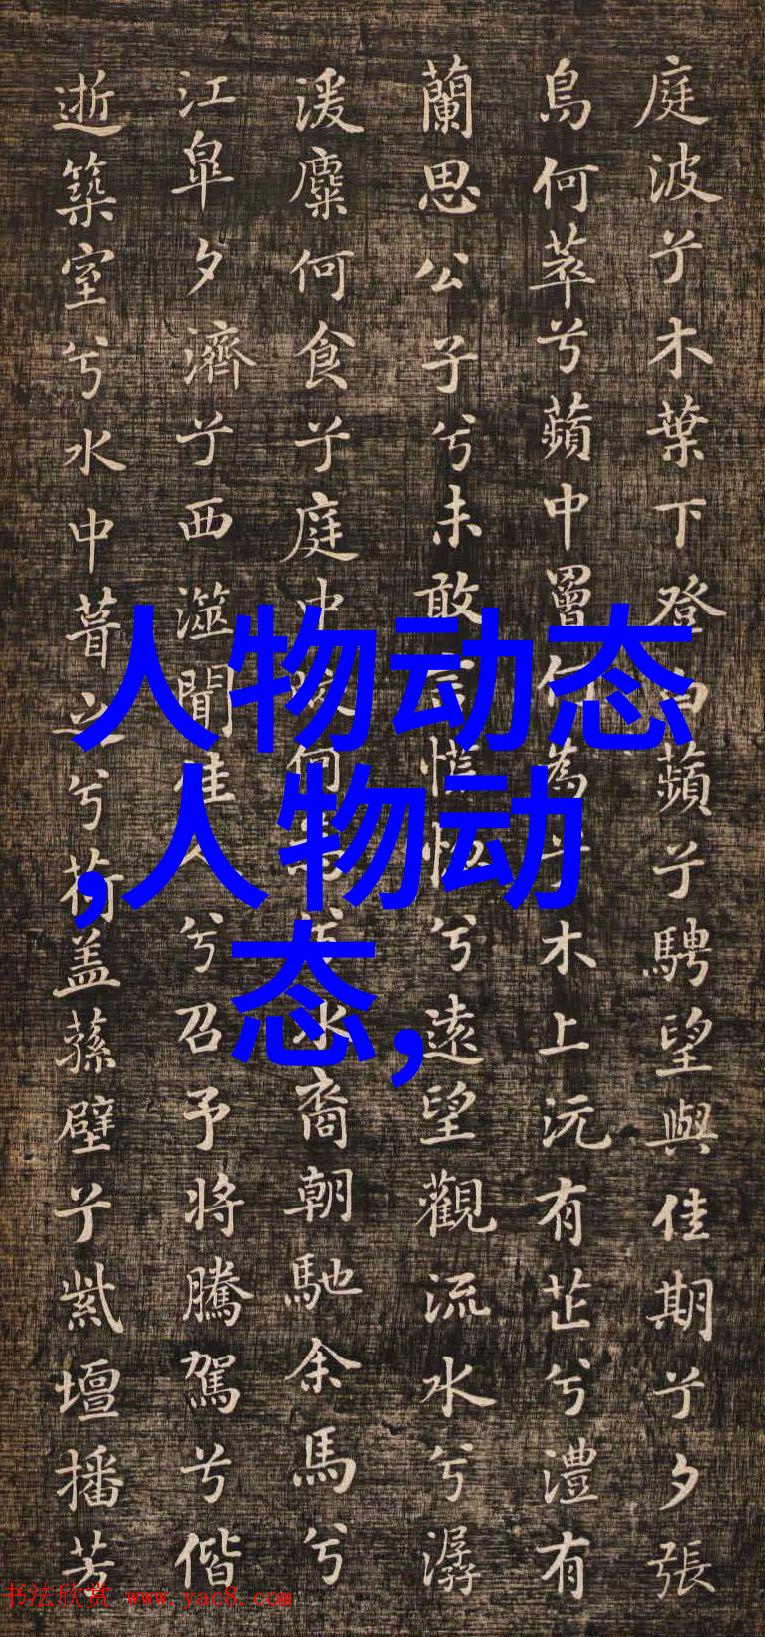 庭波兮木葉下登白蘋兮騁望與佳期兮夕張
鳥何萃兮蘋中罾何為兮木上沅有芷兮澧有
蘭思公子兮未敢言慌惚兮遠望觀流水兮潺
湲麋何食兮庭中蛟何為兮水裔朝馳余馬兮
江皐夕濟兮西澨聞佳人兮召予將騰駕兮偕
逝築室兮水中葺之兮荷盖蓀壁兮紫壇播芳
人物动态
,人物动
态,
书法欣赏 www.yac8.com